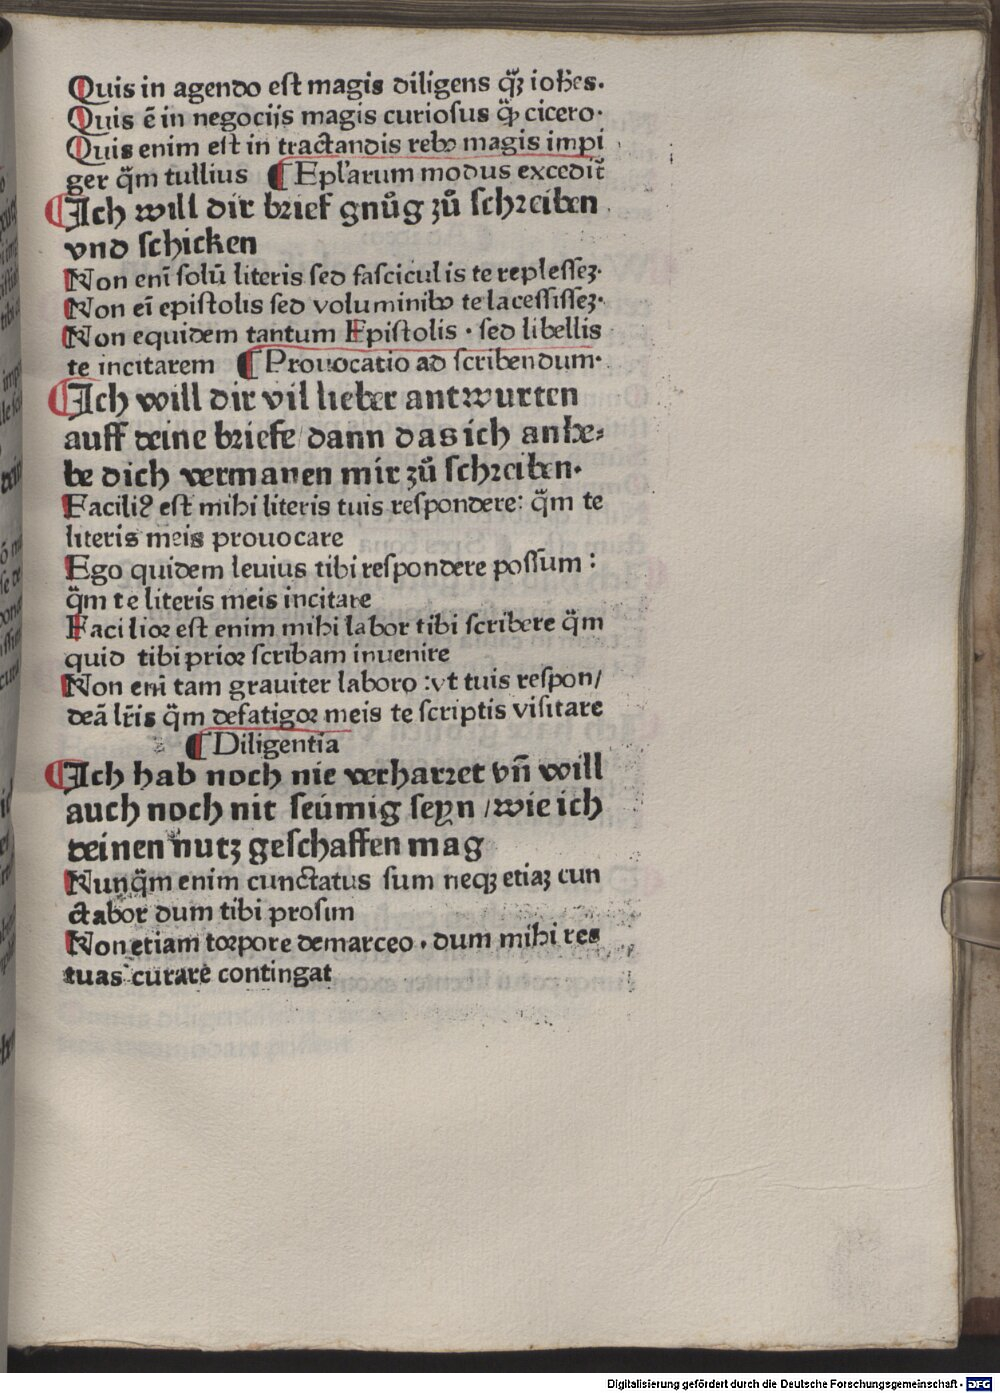 Quis in agendo eſt magis diligens qꝫ̃ ioħes.
Quis ē in negocijs magis curioſus qꝫ̃ cicero.
Quis enim eſt in tractandis rebꝰ magis impi
ger q̈m tullius ¶ Epl'arum modus excedit᷑
¶ Ich will dir brief gnůg zů ſchꝛeiben
vnd ſchicken
Non eni᷑ ſolū literis ſed faſciculis te repleſſeꝫ.
Non ei᷑ epiſtolis ſed voluminibꝰ te laceſſiſſeꝫ.
Non equidem tantum Epiſtolis . ſed libellis
te incitarem ¶ Prouocatio ad ſcribendum.
¶ Ich will dir vil lieber antwurten
auff deine briefe / dann das ich anhe⸗
be dich vermanen mir zů ſchꝛeiben.
Faciliꝰ eſt mihi literis tuis reſpondere: q̈m te
literis meis prouocare
Ego quidem leuius tibi reſpondere poſſum :
q̈m te literis meis incitare
Facilioꝛ eſt enim mihi labor tibi ſcribere q̈m
quid tibi prioꝛ ſcribam inuenire
Non eni᷑ tam grauiter laboro :vt tuis reſpon/
deā lr̄is q̈m defatigoꝛ meis te ſcriptis viſitare
¶ Diligentia
¶ Ich hab noch nie verharꝛet vn̄ will
auch noch nit ſeúmig ſeyn / wie ich
deinen nutz geſchaffen mag
Nunq̈m enim cunctatus ſum neqꝫ etiaꝫ cun
ctabor dum tibi proſim
Non etiam toꝛpore demarceo . dum mihi res
tuas curare contingat
Digitalisierung gefördert durch die Deutsche Forschungsgemeinschaft - DFG